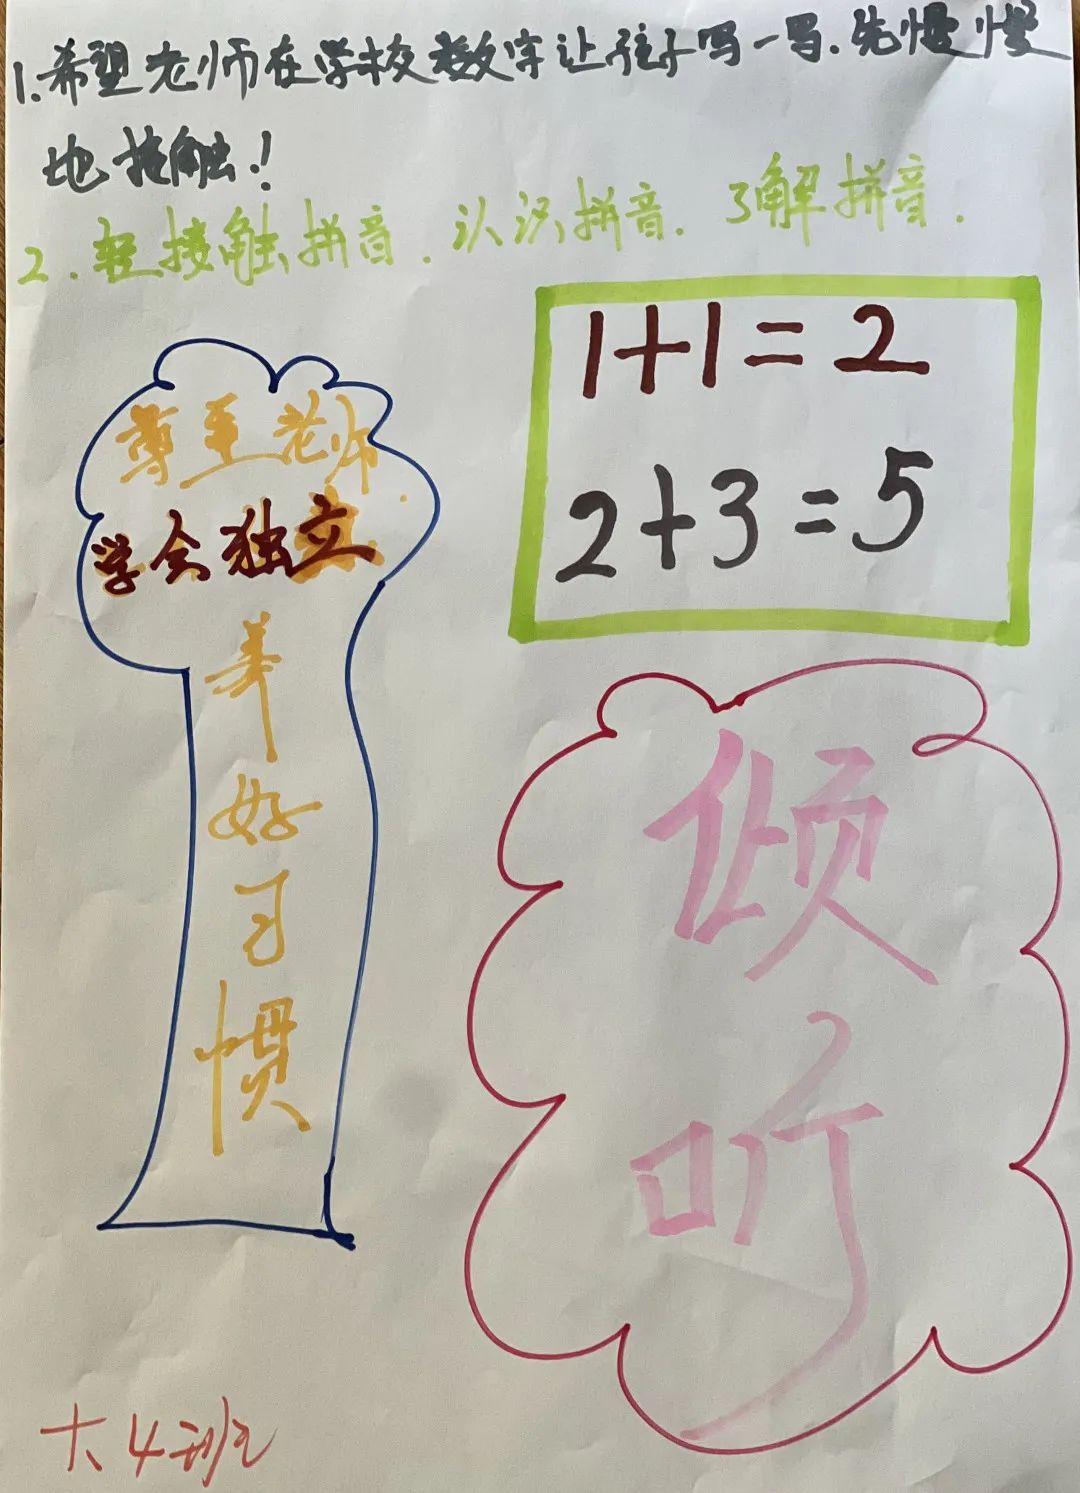 1.希望老师在学校数字让孩子写一写.先慢慢
地接触!
2.轻接触拼音.认识拼音.了解拼音.
1+1=2
2+3=5
尊重老师.
学会独立
养
好
习
惯
倾
听
大4班